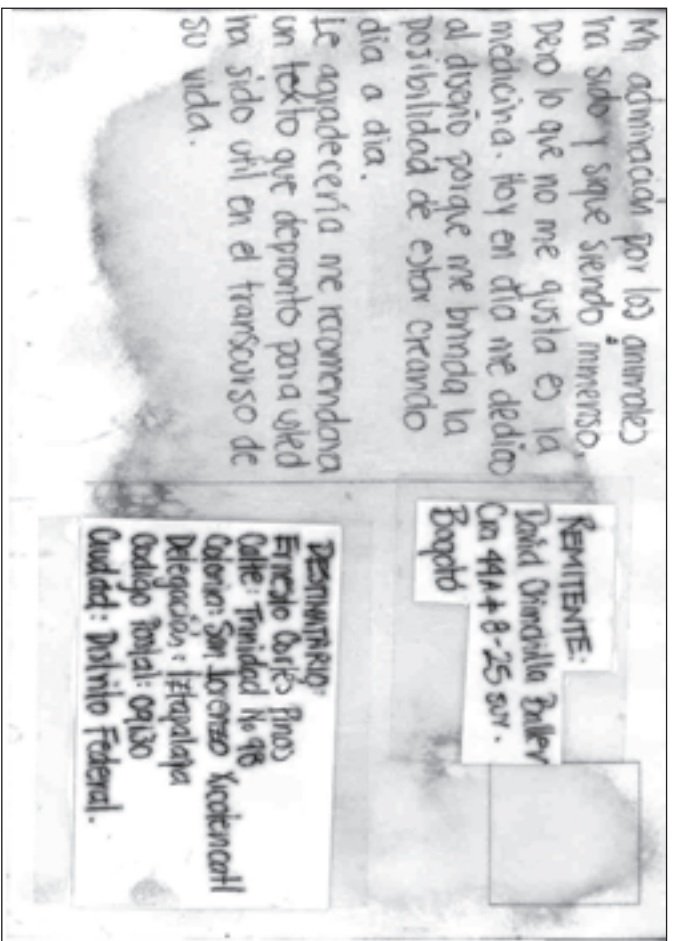 Mi admiración por los animales
ha sido y sigue siendo inmenso,
pero lo que no me gusta es la
medicina. Hoy en día me dedico
al diseño porque me brinda la
posibilidad de estar creando
día a día.
Le agradecería me recomendara
un texto que depronto para usted
ha sido util en el transcurso de
su vida.
REMITENTE:
David Chinchilla
Cra 44A # 8-25 sur.
Bogotá
DESTINATARIO:
Ernesto Cortés Pinos
Calle: Trinidad No 98
Colonia: San Lorenzo Xicotencatl
Delegación: Iztapalapa
Codigo Postal: 09130
Ciudad: Distrito Federal.